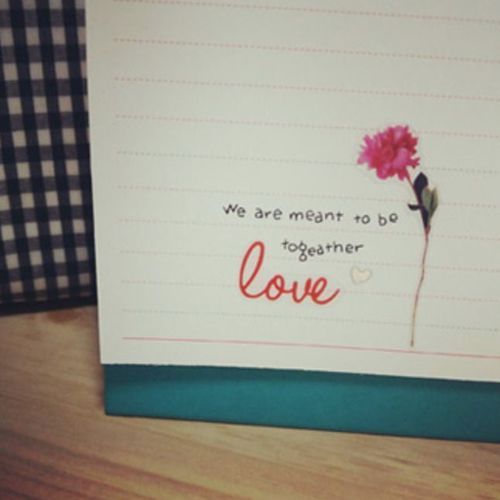 We are meant to be
togeather
love